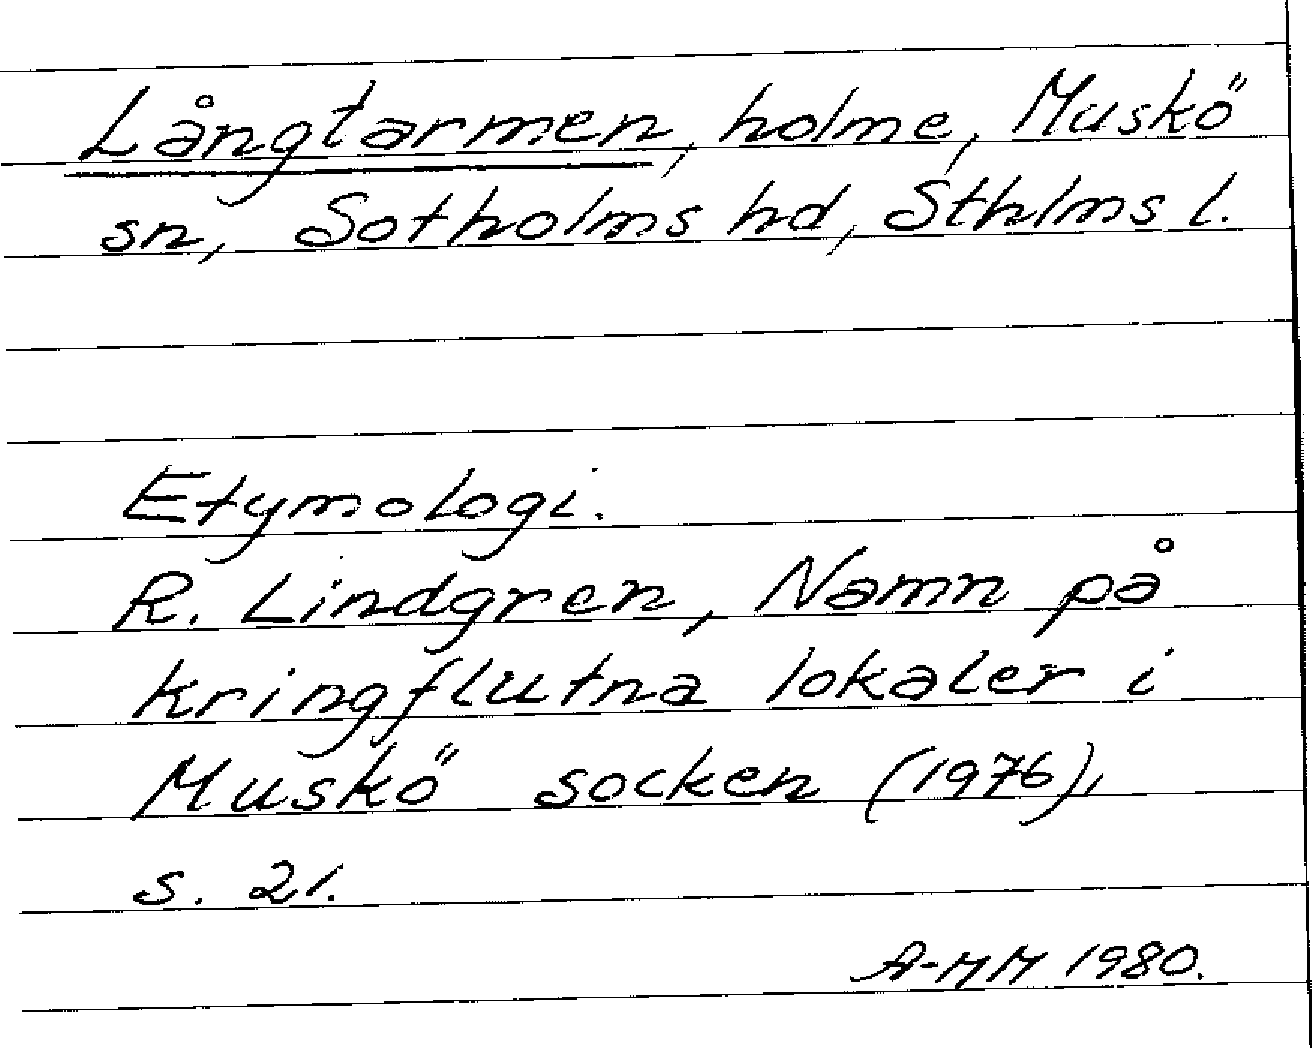 Långtarmen, holme, Muskö
sn, Sotholms hd, Sthlms l.
Etymologi.
R. Lindgren, Namn på
kringflutna lokaler i
Muskö socken (1976),
s. 21.
A-MM 1980.